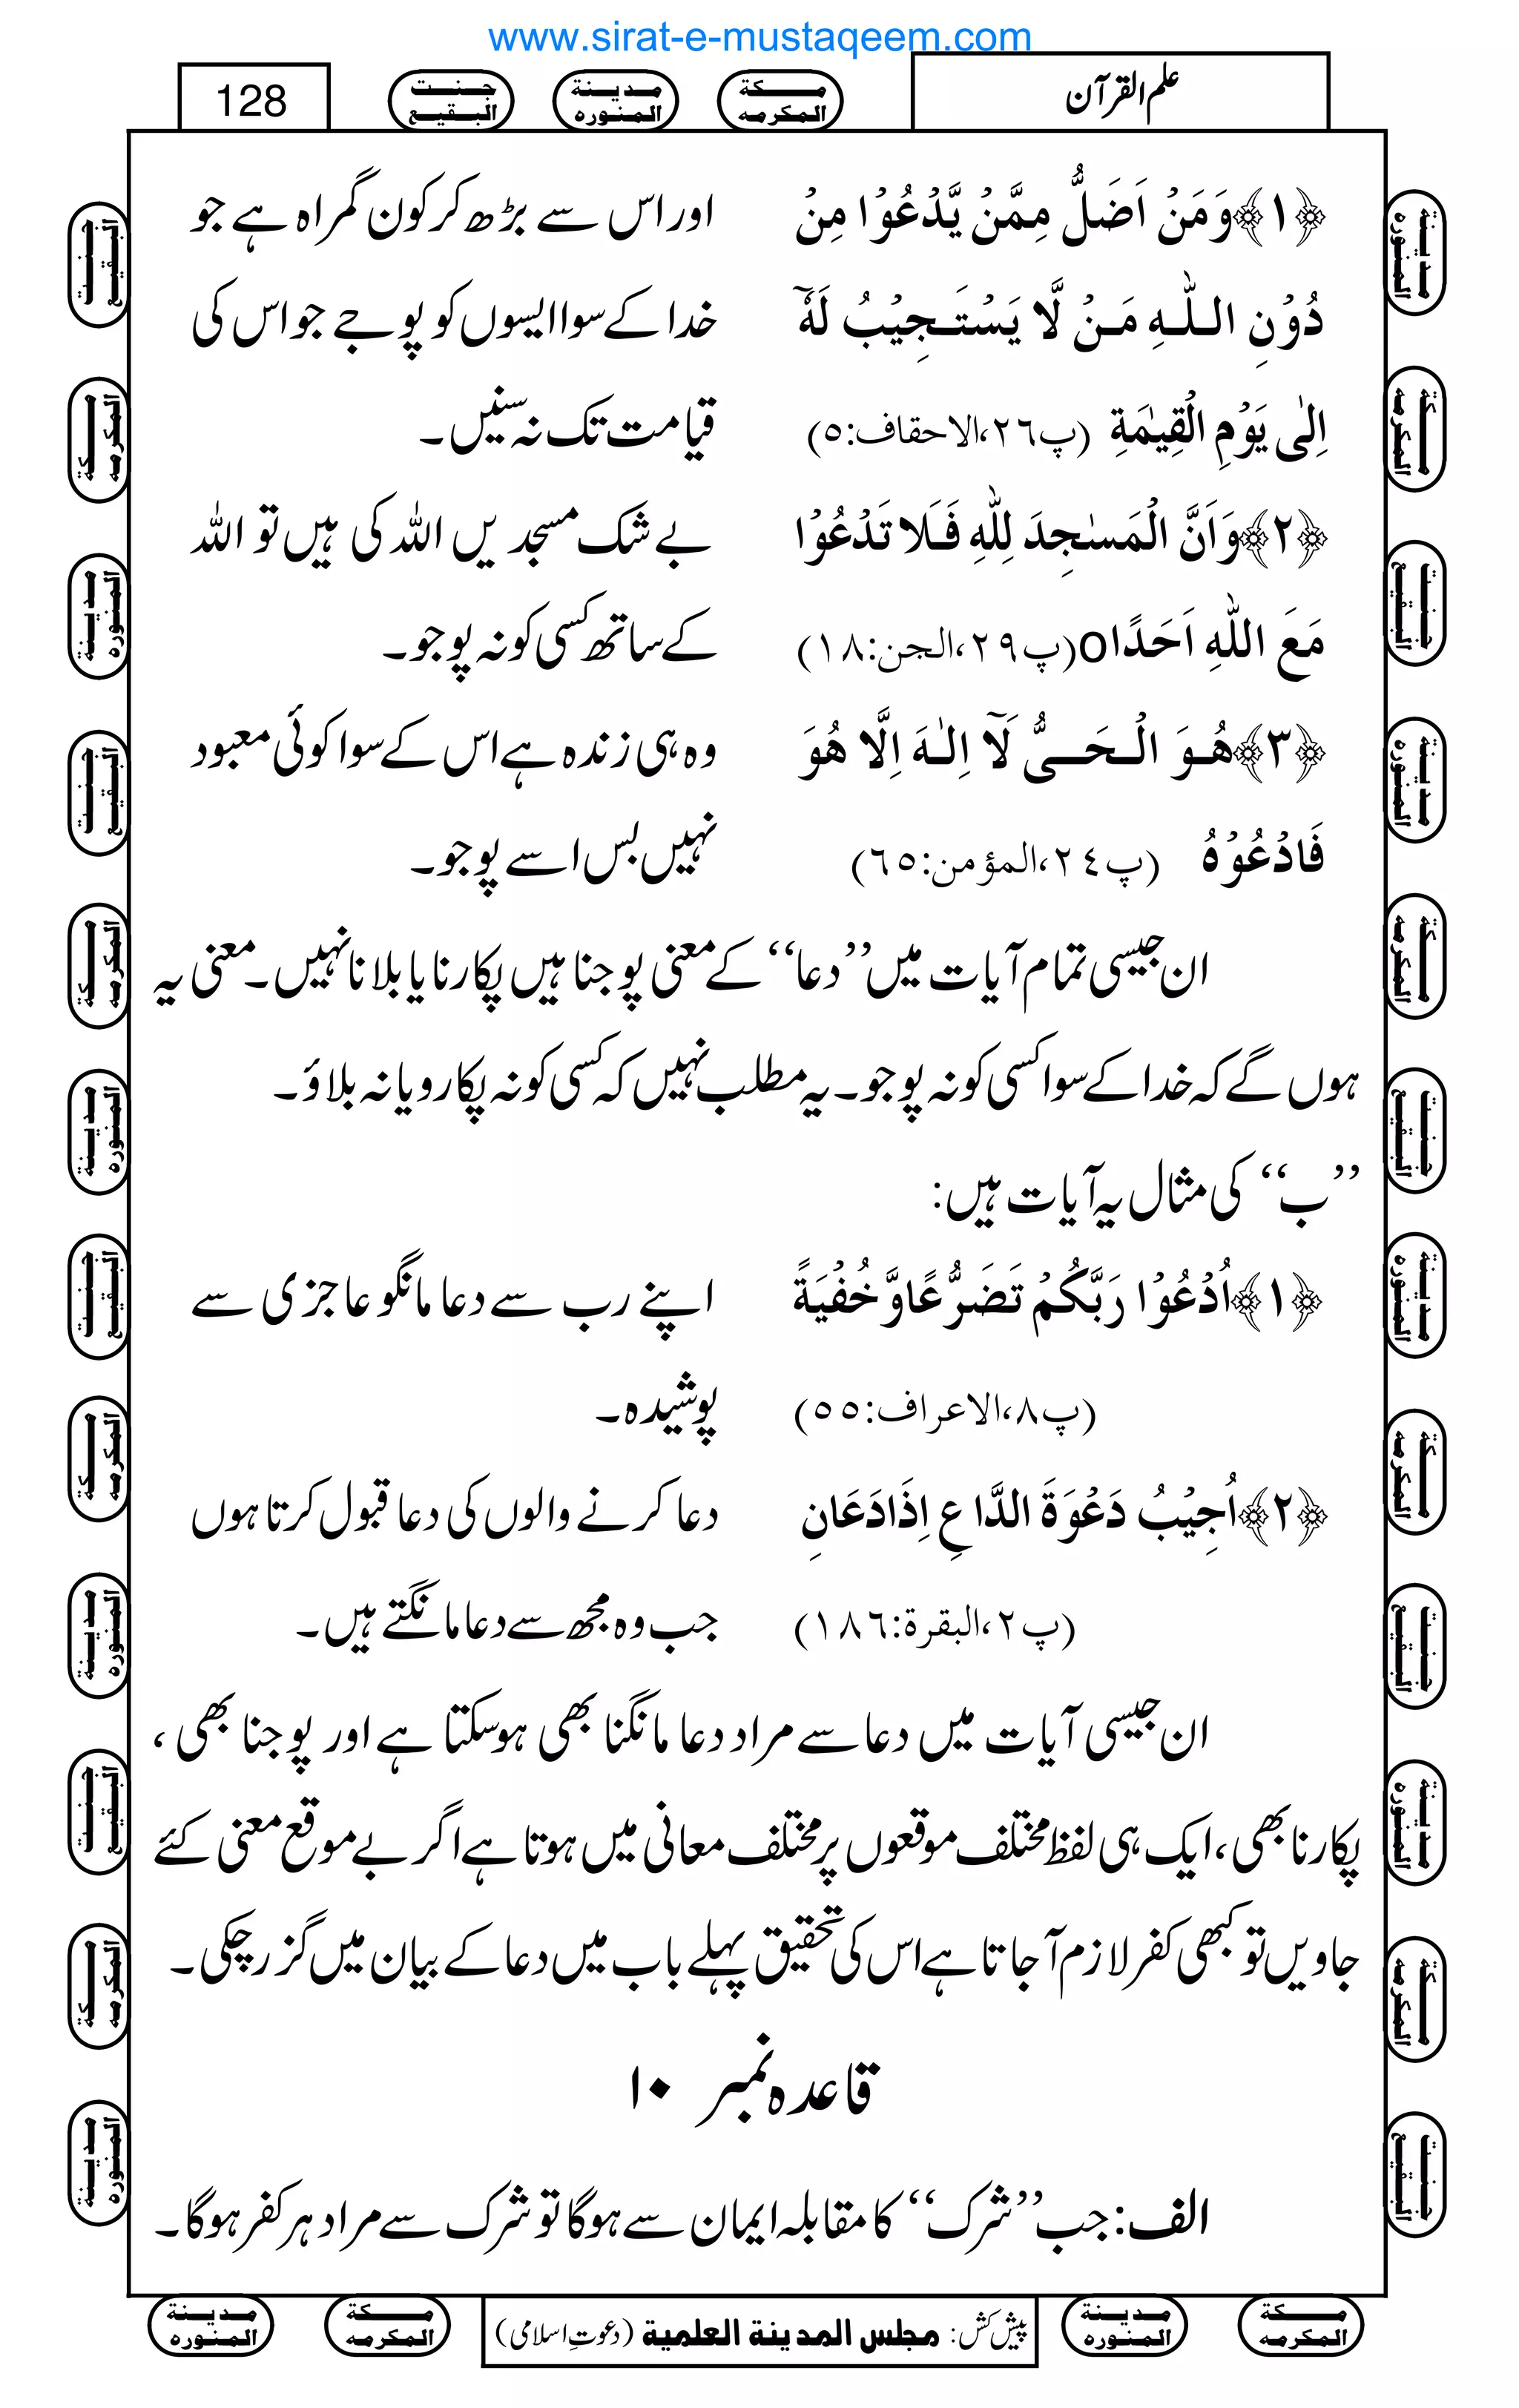 www.sirat-e-mustaqeem.com
علم القرآن
مكة المكرمه
مدينة المنوره
جنت البقيع
128
﴿١﴾وَمَنۡ اَضَلُّ مِمَّنۡ يَّدۡعُوۡا مِنۡ اور اس سے بڑھ کر کون گمراہ ہے جو
دُوۡنِ اللّٰهِ مَنۡ لَّا يَسۡتَجِيۡبُ لَهٗۤ خدا کے سوا ایسوں کو پوجے جو اس کی
اِلٰى يَوۡمِ الۡقِيٰمَةِ (پ٢٦،الاحقاف:٥) قیامت تک نہ سنیں۔
﴿٢﴾وَاَنَّ الۡمَسٰجِدَ لِلّٰهِ فَلَا تَدۡعُوۡا بے شک مسجدیں اللہ کی ہیں تو اللہ
مَعَ اللّٰهِ اَحَدًاo(پ٢٩،الجن:١٨) کے ساتھ کسی کو نہ پوجو۔
﴿٣﴾هُوَ الۡحَىُّ لَاۤ اِلٰهَ اِلَّا هُوَ وہ ہی زندہ ہے اس کے سوا کوئی معبود
فَادۡعُوۡهُ (پ٢٤،المؤمن:٦٥) نہیں بس اسے پوجو۔
ان جیسی تمام آیات میں ’’دعا‘‘ کے معنی پوجنا ہیں پکارنا یا بلانا نہیں۔ معنی یہ
ہوں گے کہ خدا کے سوا کسی کو نہ پوجو۔ یہ مطلب نہیں کہ کسی کو نہ پکارو یا نہ بلاؤ۔
’’ب‘‘ کی مثال یہ آیات ہیں:
﴿١﴾اُدۡعُوۡا رَبَّكُمۡ تَضَرُّعًا وَّخُفۡيَةً اپنے رب سے دعا مانگو عاجزی سے
(پ٨،الاعراف:٥٥) پوشیدہ۔
﴿٢﴾اُجِيۡبُ دَعۡوَةَ الدَّاعِ اِذَادَعَانِ دعا کرنے والوں کی دعا قبول کرتا ہوں
(پ٢،البقرة:١٨٦) جب وہ مجھ سے دعا مانگتے ہیں۔
ان جیسی آیات میں دعا سے مراد دعا مانگنا بھی ہوسکتا ہے اور پوجنا بھی،
پکارنا بھی، ایک ہی لفظ مختلف موقعوں پر مختلف معانی میں ہوتا ہے اگر بے موقع معنی کئے
جاویں تو کبھی کفر لازم آجاتا ہے اس کی تحقیق پہلے باب میں دعا کے بیان میں گزر چکی۔
قاعدہ نمبر ۱۰
الف: جب ’’شرک‘‘ کا مقابلہ ایمان سے ہوگا تو شرک سے مراد ہر کفر ہوگا۔
مكة المكرمه
مدينة المنوره
پیش کش: مجلس المدينة العلمية (دعوتِ اسلامی)
مكة المكرمه
مدينة المنوره